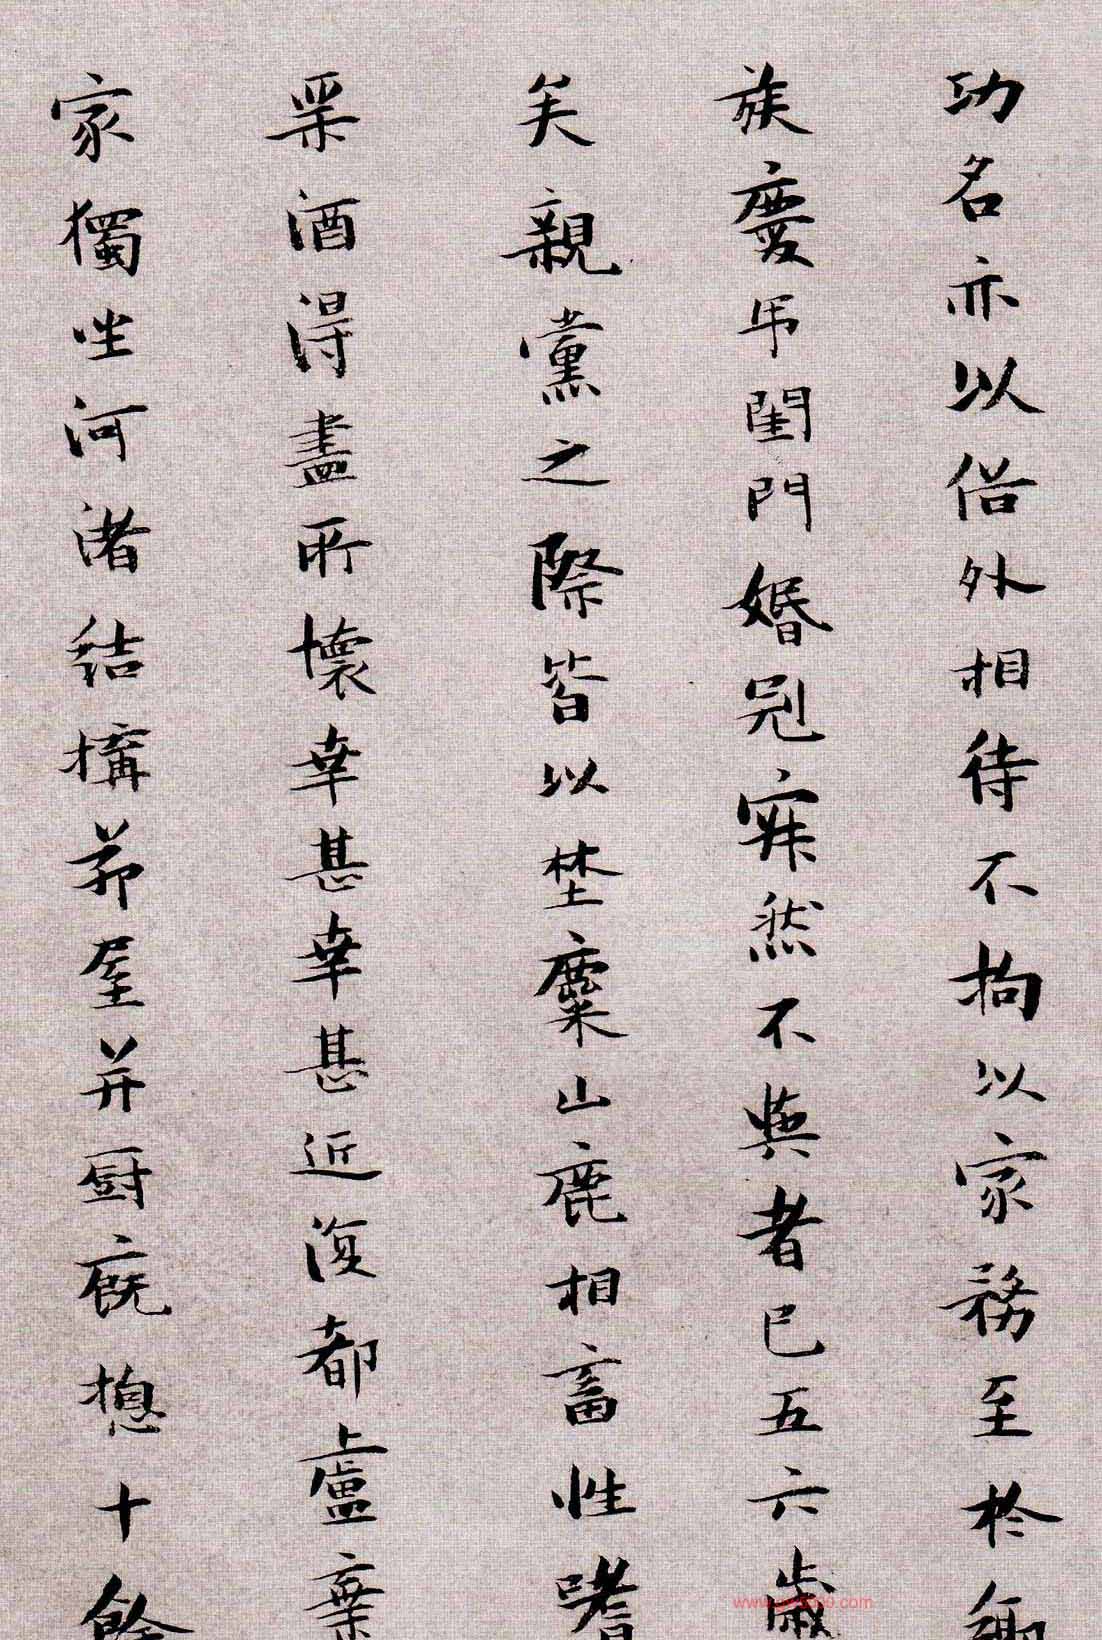 功名亦以俗外相待不拘以家務至於鄉
族慶吊閨門婚冠寂然不與者已五六歲
矣親黨之際皆以埜麋山鹿相畜性嗜
麯酒得盡所懷幸甚幸甚近復都上盧棄
家獨坐河渚結搆茆屋并厨厩揔十餘